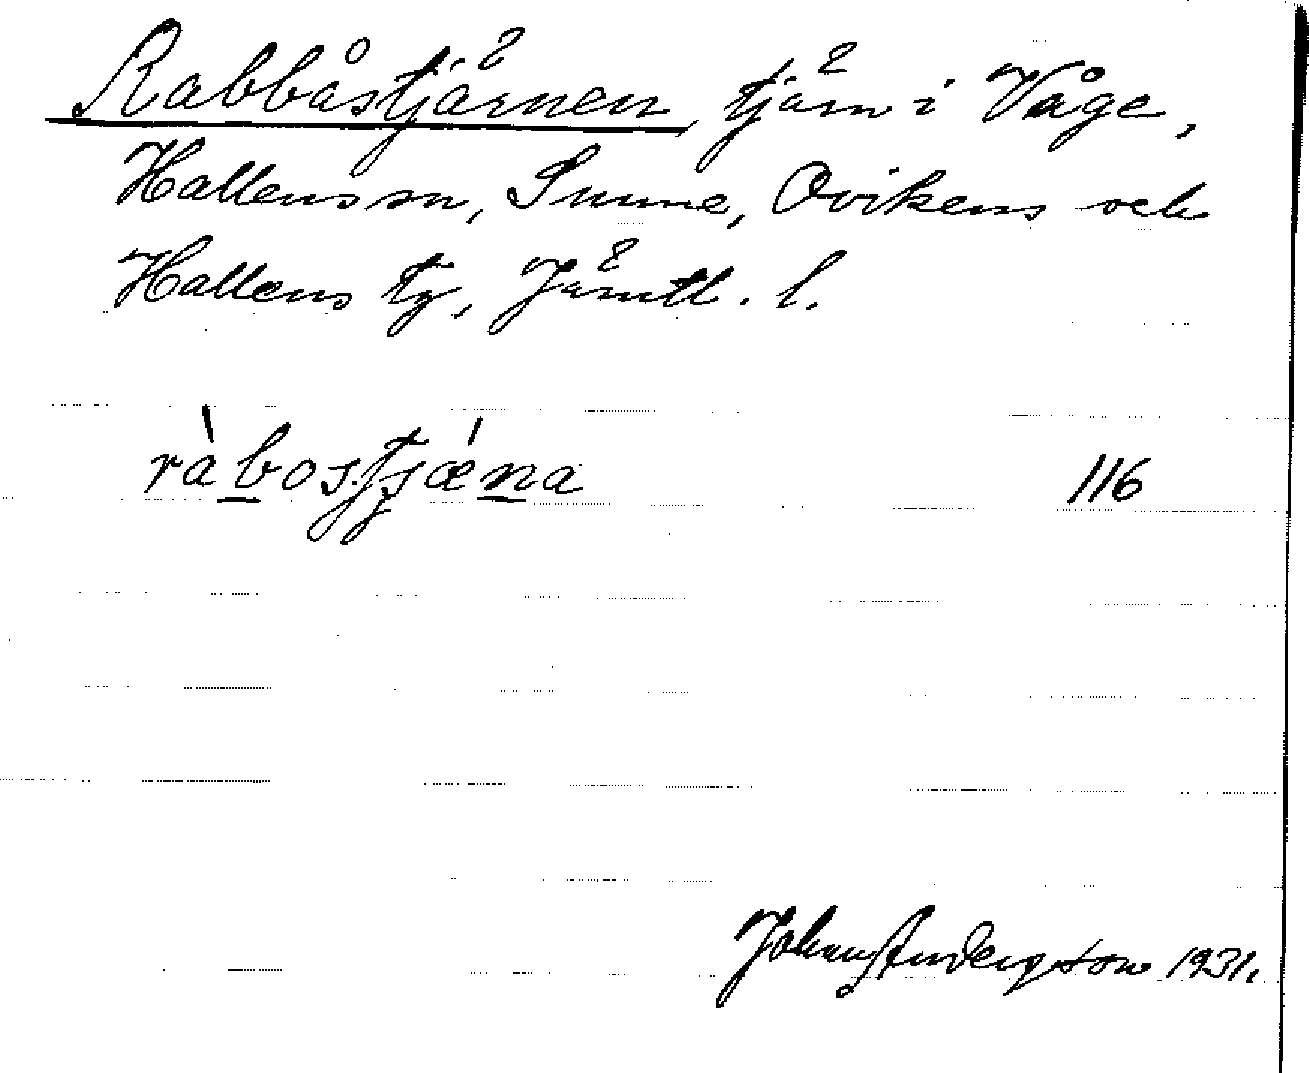 Rabbåstjärnen, tjärn i Våge,
Hallens sn, Sunne, Ovikens och
Hallens tg, Jämtl. l.
ràbostjǽna 116
Johan Andersson 1931.